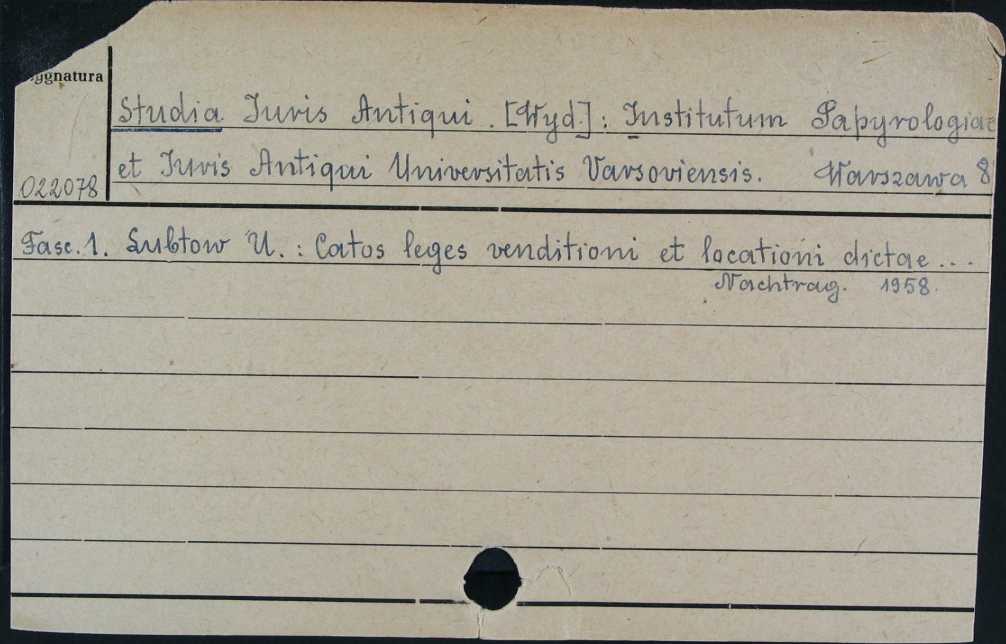 Sygnatura
Studia Iuris Antiqui. [Wyd.]: Institutum Papyrologiae
et Iuris Antiqui Universitatis Varsoviensis. Warszawa 8
022078
Fasc. 1. Lubtow U.: Catos leges venditioni et locationi dictae ...
Nachtrag. 1958.